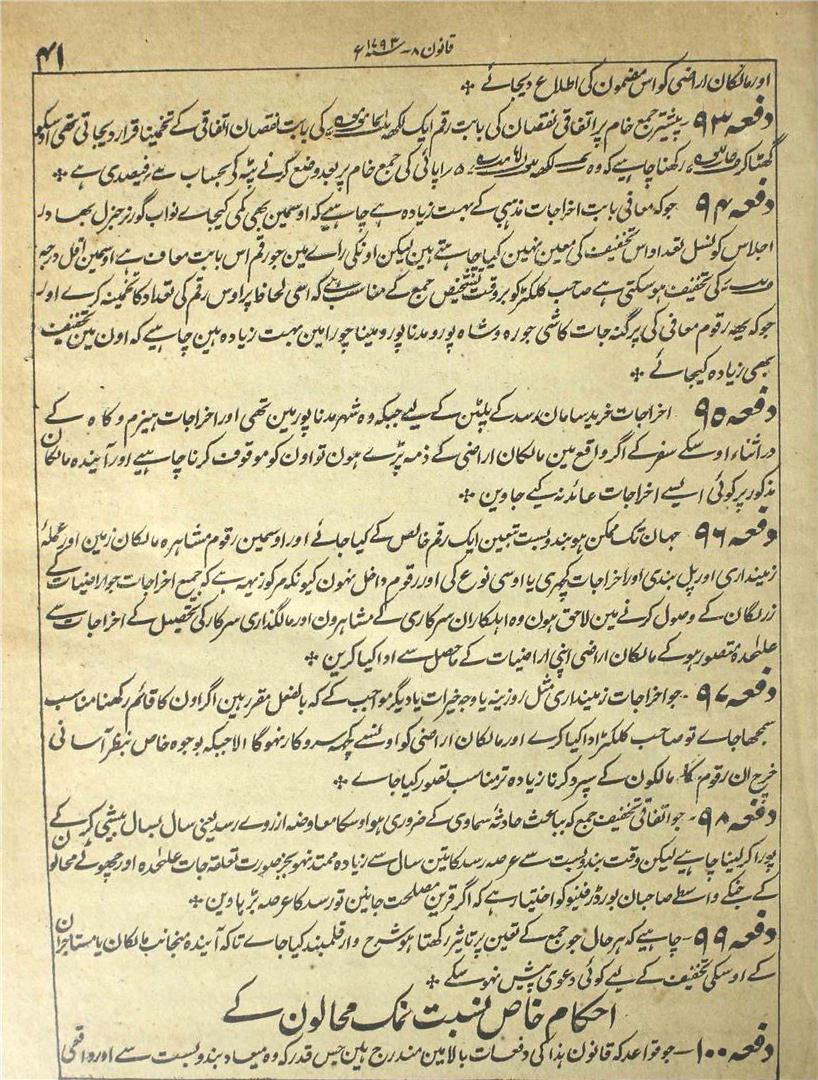 ۴۱
قانون ۸ - سنہ ۱۷۹۳ ع
اور مالکان اراضی کو اس مضمون کی اطلاع دیجائے ❊
دفعہ ۹۳ - پیشتر جمع خام پر اتفاقی نقصان کی بابت رقم ایک لکھ کی بابت نقصان اتفاقی کے تخمینا قرار دیجاتی تھی اوسکو
گھٹا کر رکھنا چاہیے کہ وہ لکھ ۵ پائی کی جمع خام پر بعد وضع کرنے پٹہ کے بحساب سے فیصدی ہے ❊
دفعہ ۹۴ جو کہ معافی بابت اخراجات مذہبی کے بہت زیادہ ہے چاہیے کہ اوسمین بھی کمی کیجاے نواب گورنر جنرل بہادر
اجلاس کونسل تعداد اس تخفیف کی معین نہین کیا چاہتے ہین لیکن اونکی راے مین جو رقم اس بابت معاف ہے اوسمین اقل درجہ
کی تخفیف ہو سکتی ہے صاحب کلکٹر کو بروقت تشخیص جمع کے مناسب ہے کہ اسی لحاظ پر اوس رقم کی تعداد کا تخمینہ کرے اور
جو کہ یہہ رقوم معافی کی پرگنہ جات کاشی جورہ و شاہ پور و مدناپور و مینا چورا مین بہت زیادہ ہین چاہیے کہ اون مین تخفیف
بھی زیادہ کیجائے ❊
دفعہ ۹۵ اخراجات خرید سامان رسد کے پلٹن کے لیے جبکہ وہ شہر مدناپور مین تھی اور اخراجات ہیزم و کاہ کے
در اثناء اوسکے سفر کے اگر واقع مین مالکان اراضی کے ذمہ پڑے ہون تو اون کو موقوف کرنا چاہیے اور آیندہ مالکان
مذکور پر کوئی ایسے اخراجات عائد نہ کیے جاوین ❊
دفعہ ۹۶ جہان تک ممکن ہو بندوبست تبہین ایک رقم خالص کے کیا جائے اور اوسمین رقوم مشاہرہ مالکان زمین اور عملۂ
زمینداری اور پل بندی اور اخراجات کچہری یا اوسی نوع کی اور رقوم داخل نہون کیونکہ مرکوز یہہ ہے کہ جمیع اخراجات جو اراضیات کے
زر لگان کے وصول کرنے مین لاحق ہون وہ اہلکاران سرکاری کے مشاہرون اور مالگذاری سرکار کی تحصیل کے اخراجات سے
علٰحدہ متصور ہو کے مالکان اراضی اپنی اراضیات کے ماحصل سے ادا کیا کرین ❊
دفعہ ۹۷ - جو اخراجات زمینداری مثل روزینہ یا وجہ خیرات یا دیگر مواجب کے کہ بالفعل مقرر ہین اگر اون کا قائم رکھنا مناسب
سمجھا جاے تو صاحب کلکٹر ادا کیا کرے اور مالکان اراضی کو اونسے کچھہ سروکار نہوگا الا جبکہ بوجوہ خاص بنظر آسانی
خرچ ان رقوم کا مالکون کے سپرد کرنا زیادہ تر مناسب تصور کیا جاے ❊
دفعہ ۹۸ - جو اتفاقی تخفیف جمع کہ بباعث حادثۂ سماوی کے ضروری ہو اوسکا معاوضہ از روے رسد یعنی سال بسال بیشی کرنے کے
پورا کر لینا چاہیے لیکن وقت بندوبست سے عرصہ رسد کا تین سال سے زیادہ ممتد نہو بجز صورت تعلقہ جات علٰحدہ اور چھوٹے محالون
کے جنکے واسطے صاحبان بورڈ رفینیو کو اختیار ہے کہ اگر قرین مصلحت جانین تو رسد کا عرصہ بڑہاوین ❊
دفعہ ۹۹ - چاہیے کہ ہر حال جو جمع کے تعین پر تاثیر رکھتا ہو شرح وار قلمبند کیا جاے تاکہ آیندہ منجانب مالکان یا مستاجران
کے اوسکی تخفیف کے لیے کوئی دعوی پیش نہو سکے ❊
احکام خاص نسبت نمک محالون کے
دفعہ ۱۰۰ - جو قواعد کہ قانون ہذا کی دفعات بالا مین مندرج ہین جس قدر کہ وہ میعاد بندوبست سے اور واقعی